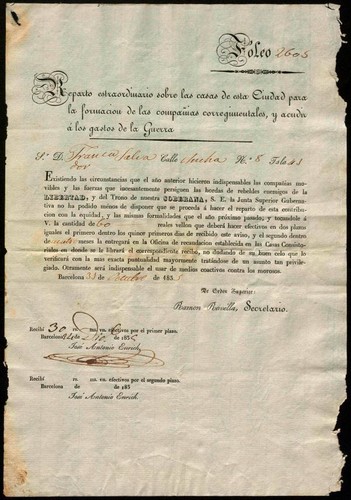 Foleo 2605
Reparto estraordinario sobre las casas de esta Ciudad para
la formacion de las compañias corregimentales, y acudir
á los gastos de la Guerra
S.r D. Franco Salva Calle Ancha N.º 8 Folo 41
Existiendo las circunstancias que el año anterior hicieron indispensables las compañias movi-
bles y las fuerzas que incesantemente persiguen las hordas de rebeldes enemigos de la
LIBERTAD, y del Trono de nuestra SOBERANA, S. E. la Junta Superior Guberna-
tiva no ha podido menos de disponer que se proceda á hacer el reparto de esta contribu-
cion con la equidad, y las mismas formalidades que el año próximo pasado, y tocandole á
V. la cantidad de 60 reales vellon que deberá hacer efectivos en dos plazos
iguales el primero dentro los quince primeros dias de recibido este aviso, y el segundo dentro
de cuatro meses la entregará en la Oficina de recaudacion establecida en las Casas Consisto-
riales en donde se le librará el correspondiente recibo, no dudando de su buen celo que lo
verificará con la mas exacta puntualidad mayormente tratándose de un asunto tan privile-
giado. Otramente será indispensable el usar de medios coactivos contra los morosos.
Barcelona de Octubre de 183
De Orden Superior.
Ramon Secretario.
Recibí 30 rs. vn. efectivos por el primer plazo.
Barcelona de de 183
José Antonio Enrich
Recibí rs. vn. efectivos por el segundo plazo.
Barcelona de de 183
José Antonio Enrich.